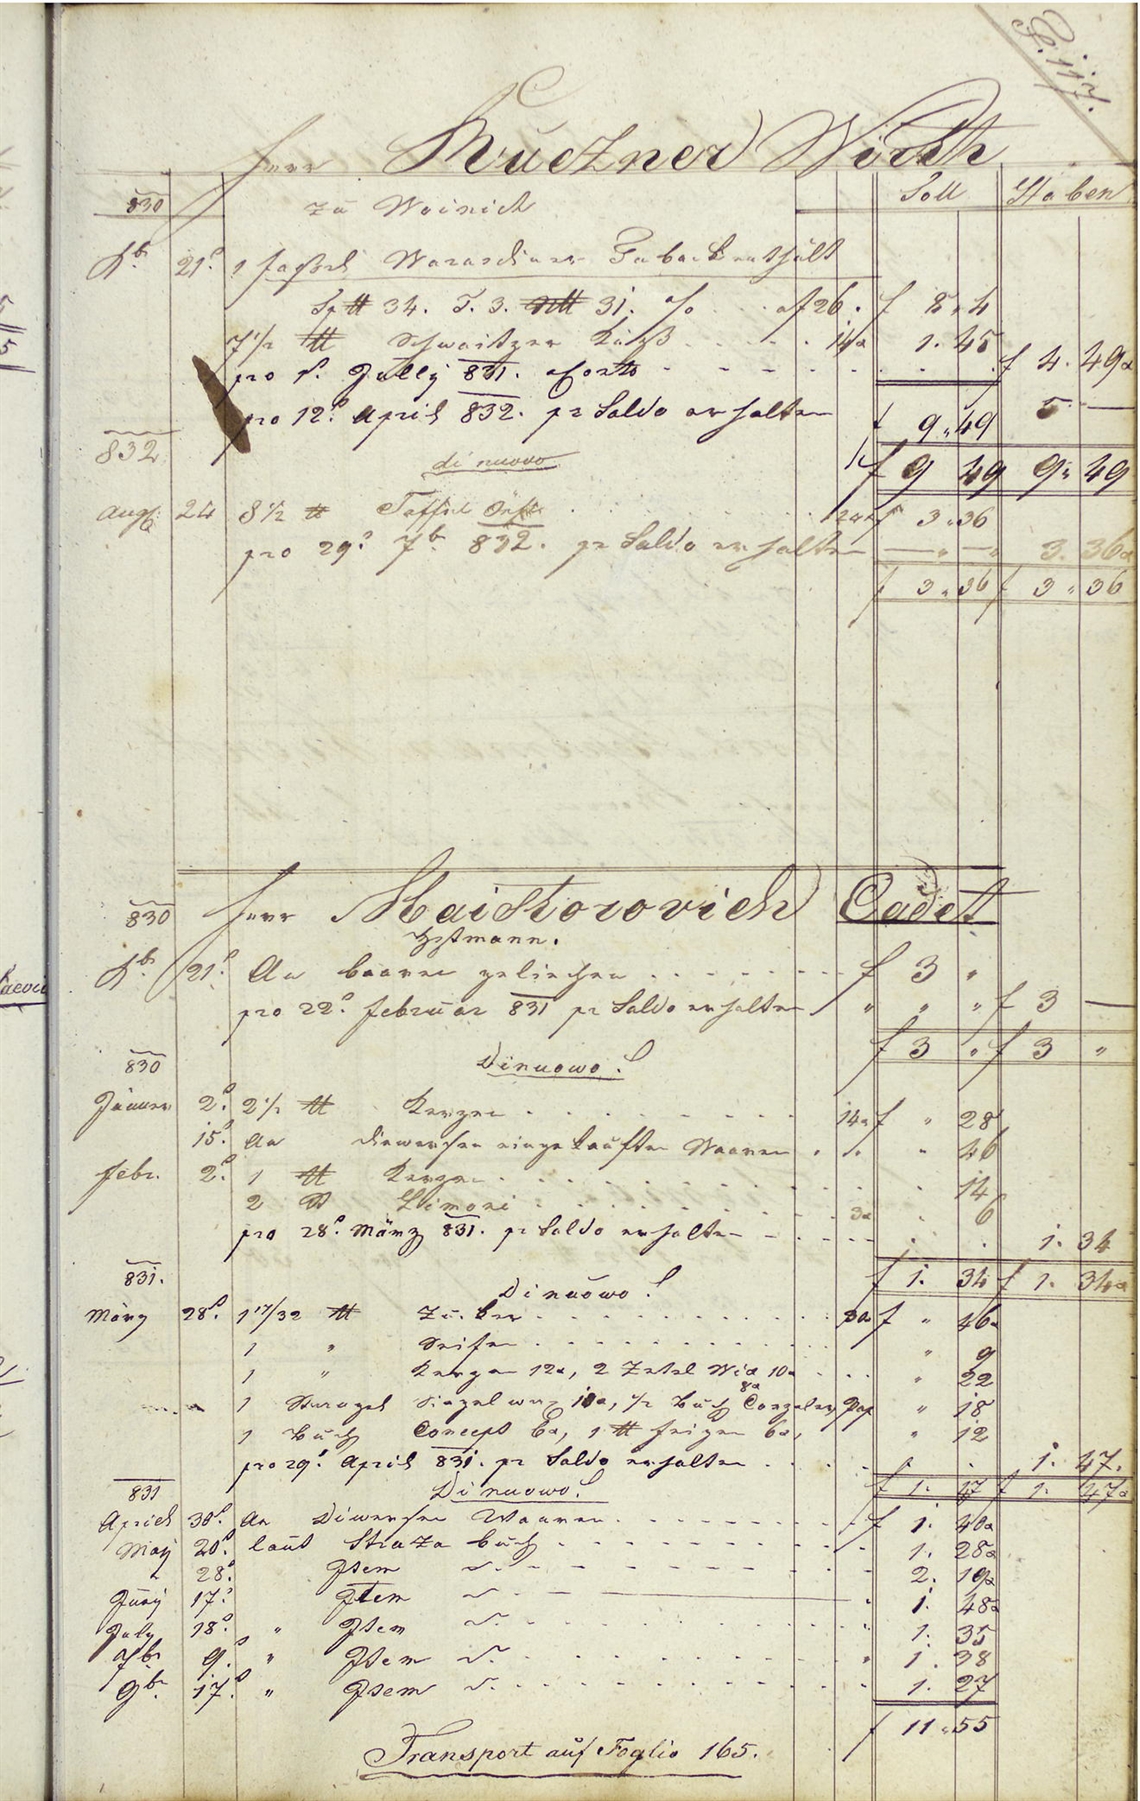 P. 117.
Herr Kuczner Wirth
830 zu Weinich Soll Haben
Xbr. 21. 1 Fassel Warasdiner Taback enthält
34. T. 3. 31. a 26. f 8 " 4
7 1/2 ℔ Schweitzer Käß 14a 1. 45
pro 1. Jully 831. a Conto f 4. 49a
pro 12. April 832. pr Saldo erhalten f 9 " 49 5 —
832 di nuovo f 9 49 9 " 49
Aug. 24 8 1/2 ℔ Taffel f 3 " 36
pro 29. 7br. 832. pr Saldo erhalten — " — 3. 36a
f 3 " 36 f 3 " 36
830 Herr Maistorovich Cadett
Xbr. 21. An baaren geliehen f 3 "
pro 22. Februar 831 pr Saldo erhalten " " " f 3 —
f 3 " f 3 "
830 Dinuowo.
Jänner 2. 2 1/2 ℔ Kerzen 14a f " 28
15. An diewersen eingekauften Waaren " " 46
Febr. 2. 1 ℔ Kerzen 14
2 Limoni 3a 6
pro 28. März 831. pr Saldo erhalten 1. 34
831. Dinuowo. f 1. 34 f 1. 34a
März 28. 1 17/32 ℔ Zucker 30 f " 46a
1 " Seifen " 9
1 " Kerzen 12a, 2 Zetel 10a " 22
8a
1 Stangel Siegelwax 10a, 1/2 Buch " 18
1 Buch Concept 6a, 1 ℔ Feigen 6a, " 12
pro 29. April 831. pr Saldo erhalten 1. 47.
831 Dinuowo. f 1. 47 f 1. 47a
April 30. An Diwersen Waaren f 1. 40a
May 20. laut Straza buch 1. 28a
28. Item 2. 19a
Juny 17. Item 1. 48a
July 18. " Item 1. 35
9. " Item 1. 38
9br. 17. " Item 1. 27
f 11 " 55
Transport auf Foglio 165.